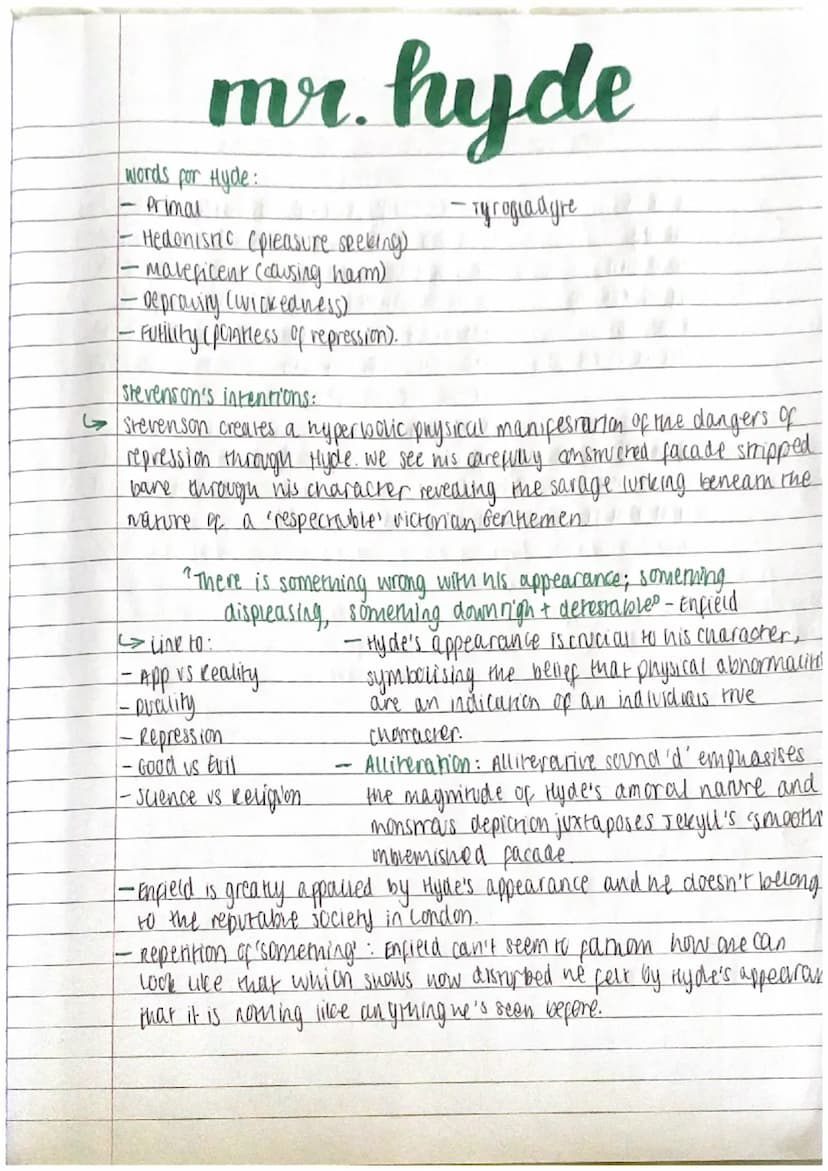 mr. hyde
words for Hyde:
- Primal - Tyrogladyte
- Hedonistic (pleasure seeking)
- Maleficent (causing harm)
- Depravity (wickedness)
- Futility (pointless of repression).
Stevenson's intentions:
↳ Stevenson creates a hyperbolic physical manifestation of the dangers of
repression through Hyde. we see his carefully constructed facade stripped
bare through his character revealing the savage lurking beneath the
nature of a 'respectable' victorian Gentlemen
"There is something wrong with his appearance; something
displeasing, something downright detestable" - Enfield
↳ Link to:
- App vs Reality
- Duality
- Repression
- Good vs Evil
- Science vs Religion
- Hyde's appearance is crucial to his character,
symbolising the belief that physical abnormaliti
are an indication of an individuals true
character.
- Alliteration: Alliterative sound 'd' emphasises
the magnitude of Hyde's amoral nature and
monstrous depiction juxtaposes Jekyll's 'smooth'
unblemished facade
- Enfield is greatly appalled by Hyde's appearance and he doesn't belong
to the reputable society in London.
- Repetition of 'something': Enfield can't seem to fathom how one can
look like that which shows how disturbed he felt by Hyde's appearan
that it is nothing like anything he's seen before.